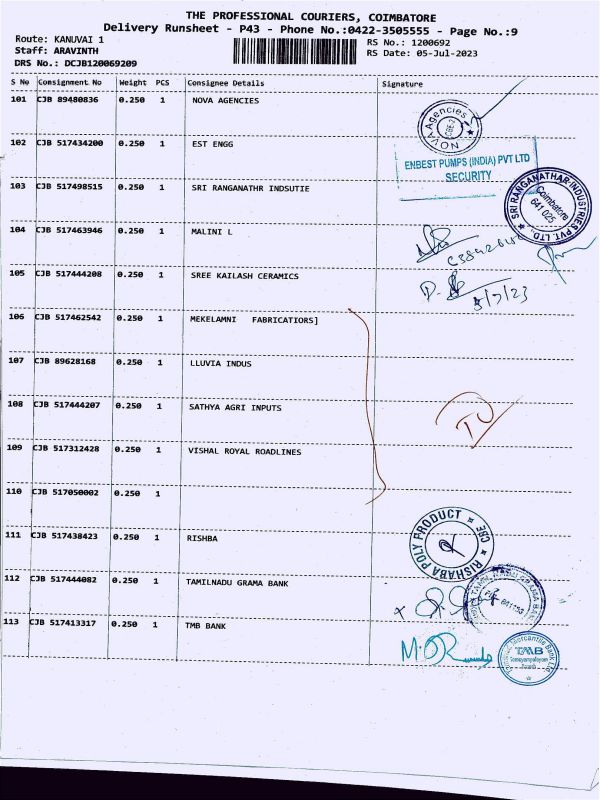 THE PROFESSIONAL COURIERS, COIMBATORE
Delivery Runsheet - P43 - Phone No.:0422-3505555 - Page No.:9
Route: KANUVAI 1
RS No.: 1200692
Staff: ARAVINTH
RS Date: 05-Jul-2023
DRS No.: DCJB120069209
S No Consignment No Weight PCS Consignee Details Signature
101 CJB 89480836 0.250 1 NOVA AGENCIES
NOVA Agencies
102 CJB 517434200 0.250 1 EST ENGG
ENBEST PUMPS (INDIA) PVT LTD
SECURITY
103 CJB 517498515 0.250 1 SRI RANGANATHR INDSUTIE
SRI RANGANATHAR INDUSTRIES PVT. LTD.
Coimbatore
641 025
104 CJB 517463946 0.250 1 MALINI L
105 CJB 517444208 0.250 1 SREE KAILASH CERAMICS
5/7/23
106 CJB 517462542 0.250 1 MEKELAMNI FABRICATIORS]
107 CJB 89628168 0.250 1 LLUVIA INDUS
108 CJB 517444207 0.250 1 SATHYA AGRI INPUTS
109 CJB 517312428 0.250 1 VISHAL ROYAL ROADLINES
110 CJB 517050002 0.250 1
111 CJB 517438423 0.250 1 RISHBA
RISHABA POLY PRODUCT CBE
112 CJB 517444082 0.250 1 TAMILNADU GRAMA BANK
113 CJB 517413317 0.250 1 TMB BANK
TMB